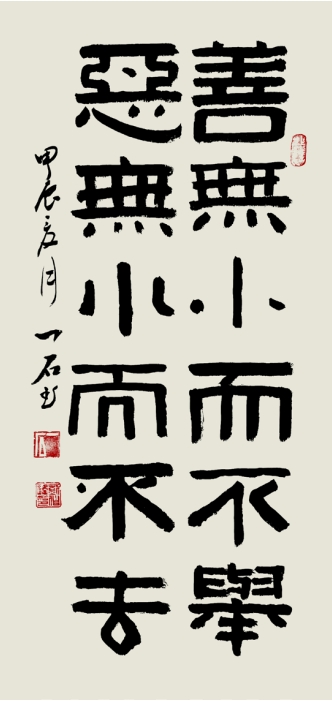 善無小而不舉
惡無小而不去
甲辰夏月 一石书